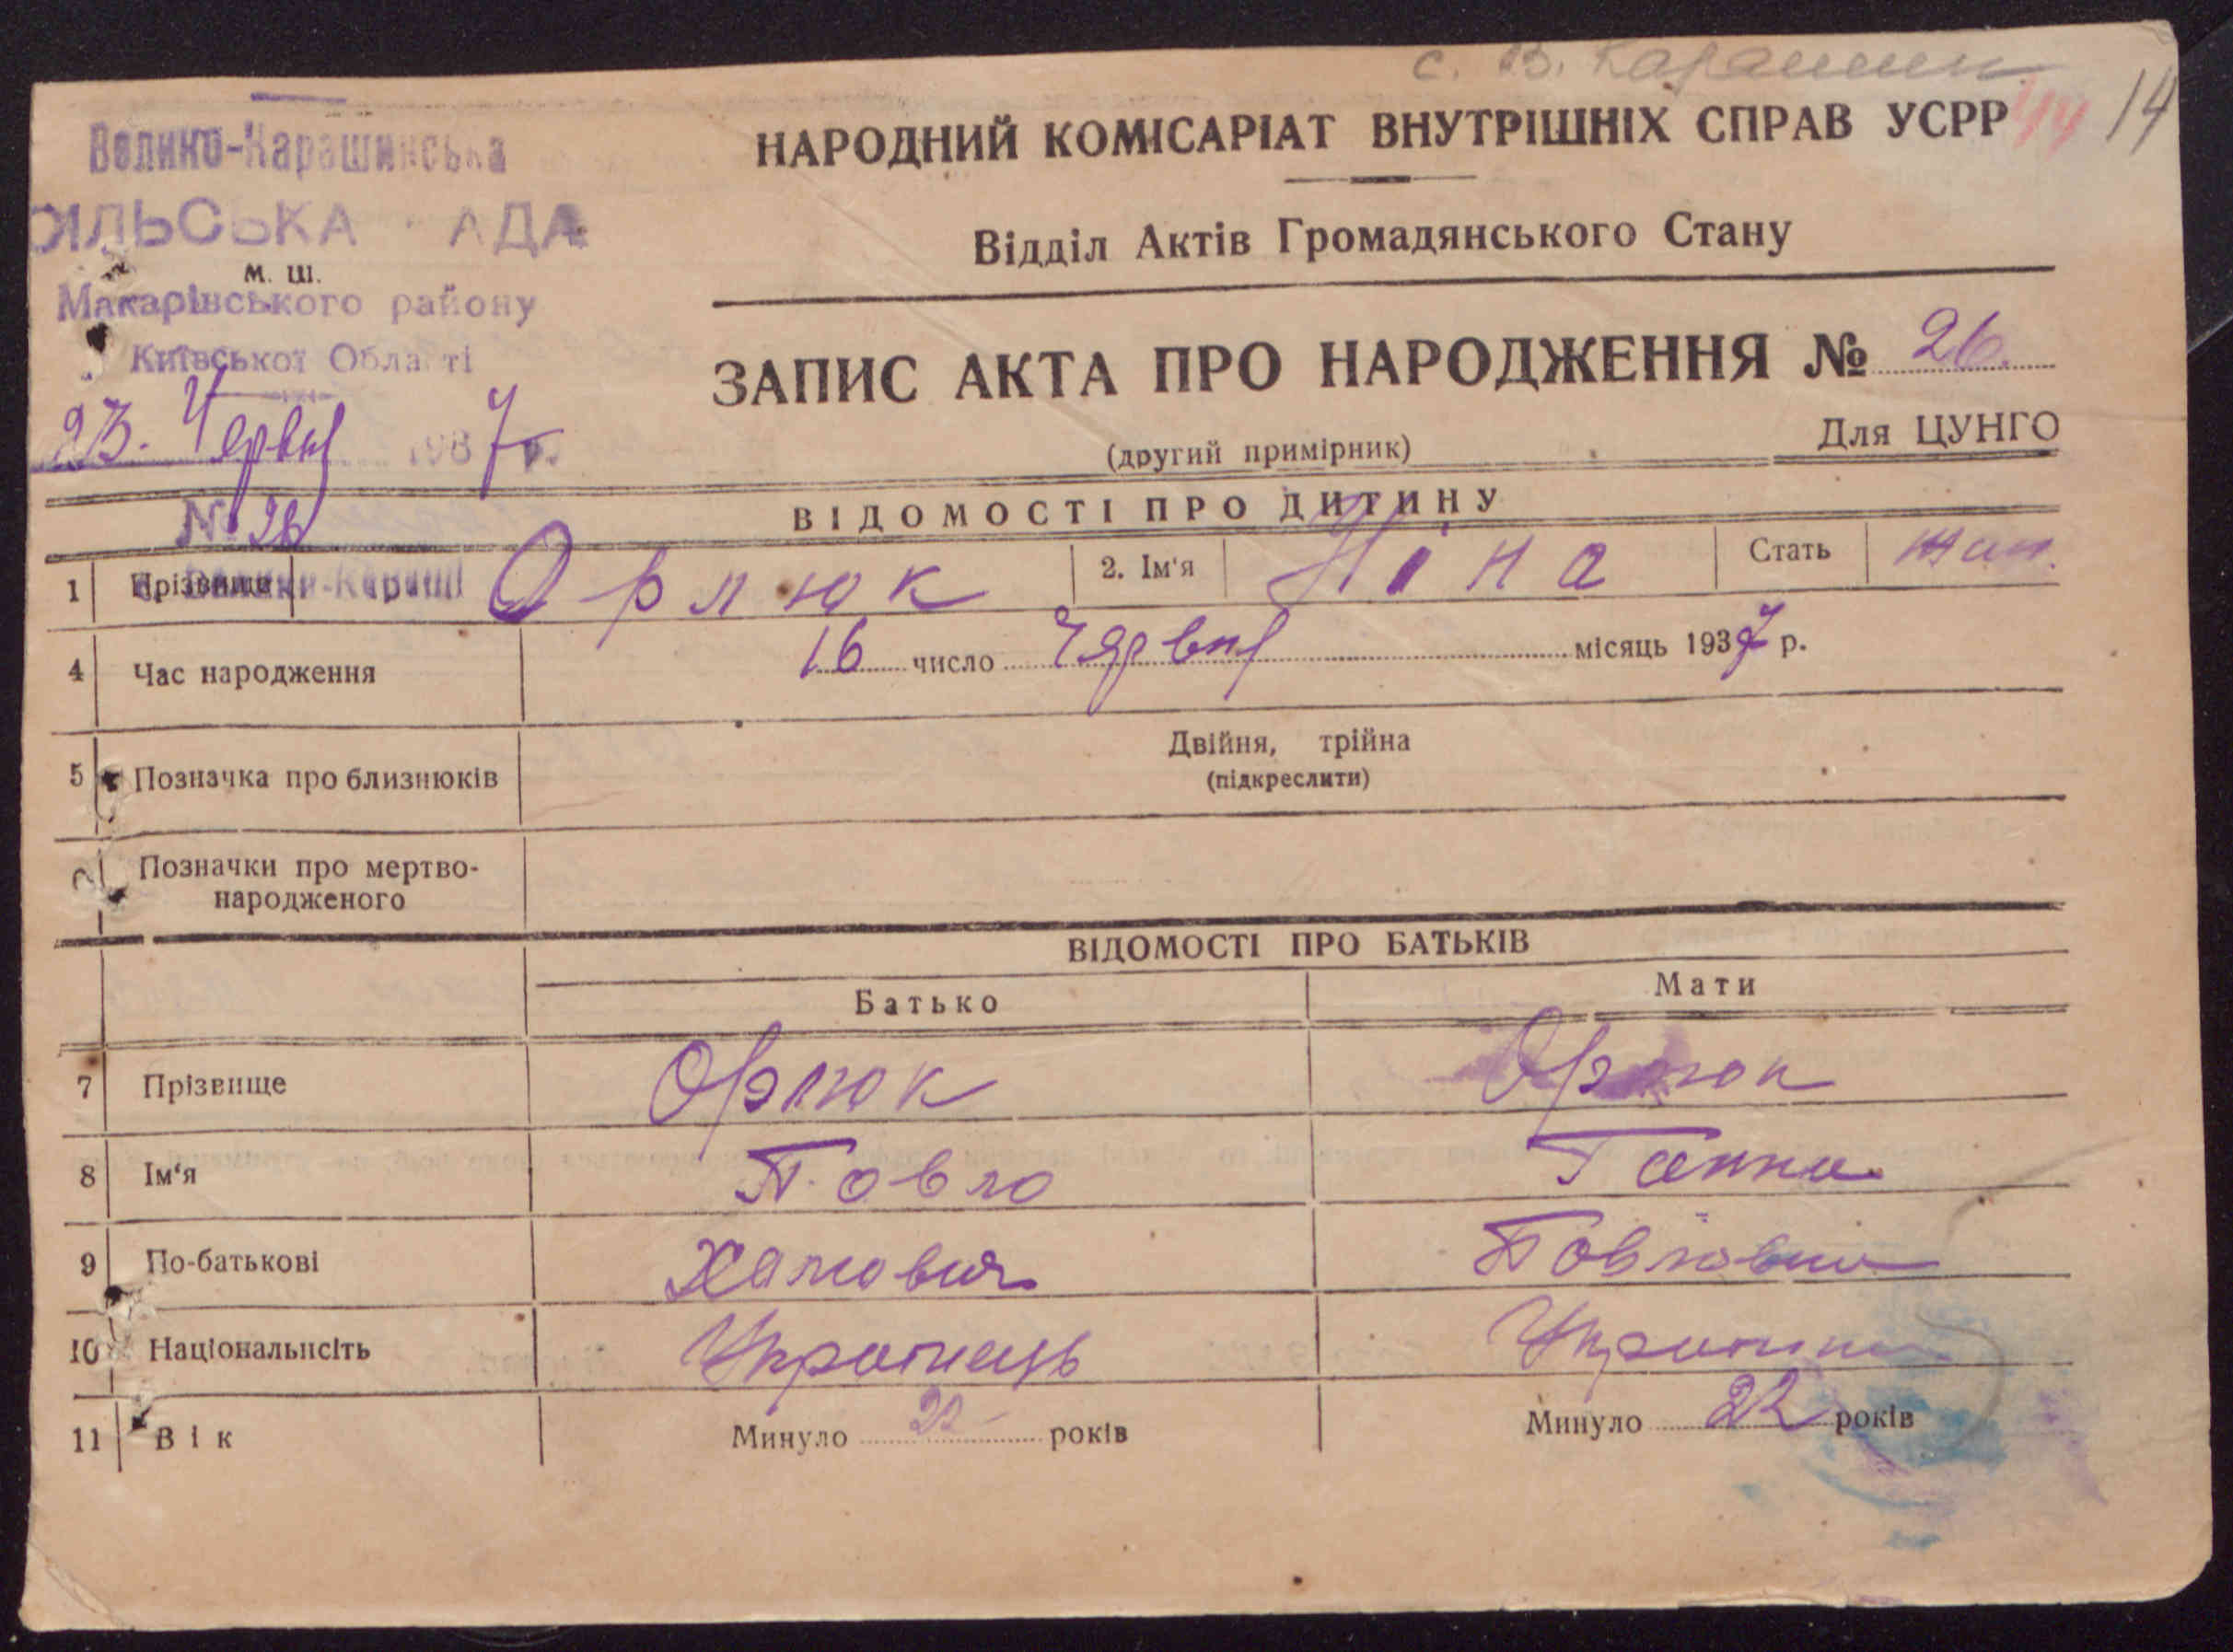 с. В. Карашин
НАРОДНИЙ КОМІСАРІАТ ВНУТРІШНІХ СПРАВ УСРР 14
Відділ Актів Громадянського Стану
Велико-Карашинська
СІЛЬСЬКА РАДА
м. ш.
Макарівського району
Київської Області
23. Червня 1937 р.
№ 26
ЗАПИС АКТА ПРО НАРОДЖЕННЯ № 26.
(другий примірник) Для ЦУНГО
ВІДОМОСТІ ПРО ДИТИНУ
1 Прізвище Орлюк 2. Ім'я Ніна Стать
4 Час народження 16 число Чярвня місяць 1937 р.
5 Позначка про близнюків Двійня, трійна
(підкреслити)
Позначки про мертво-
народженого
ВІДОМОСТІ ПРО БАТЬКІВ
Батько Мати
7 Прізвище Орлюк Орлюк
8 Ім'я Повло Ганна
9 По-батькові Повловна
10 Національнсіть Украінець Украінка
11 Вік Минуло 22 років Минуло 22 років